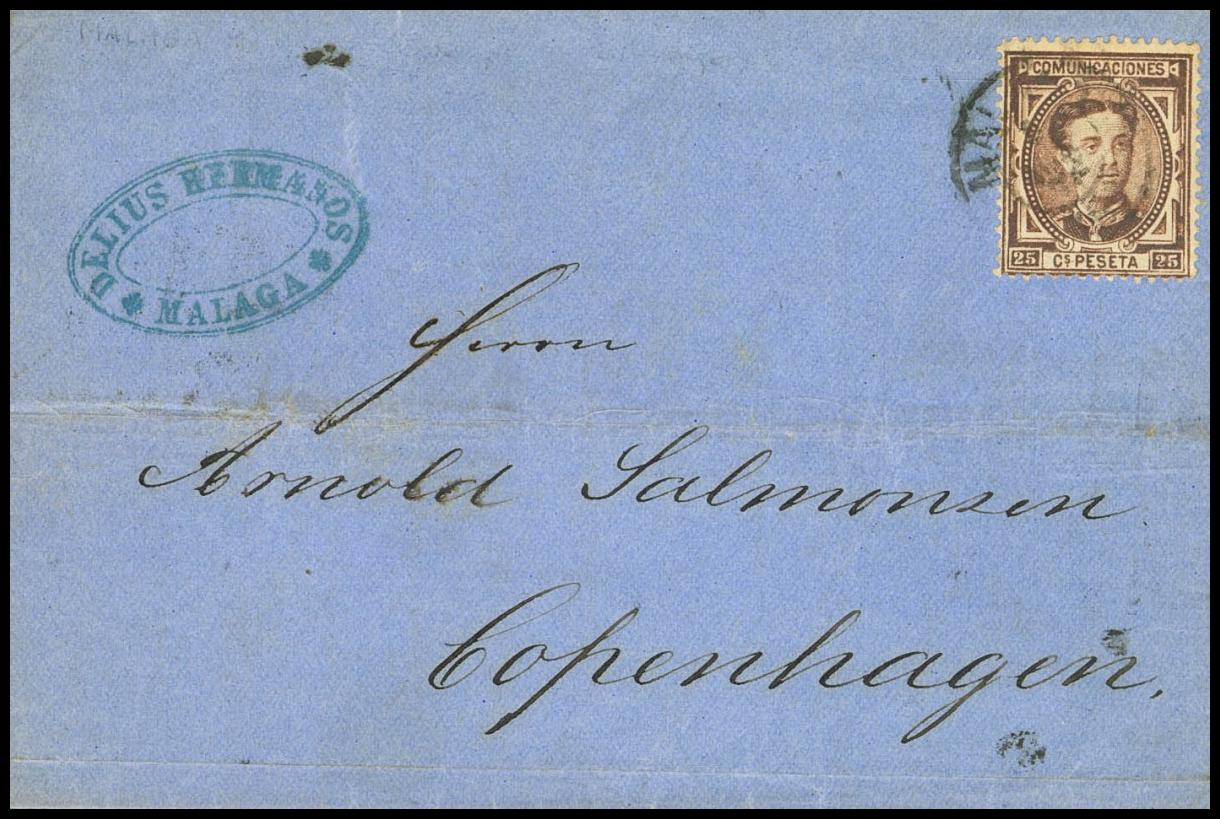 MALAGA
COMUNICACIONES
25 Cs PESETA 25
DELIUS HERMANOS
MALAGA
Herrn
Arnold Salmonsen
Copenhagen,